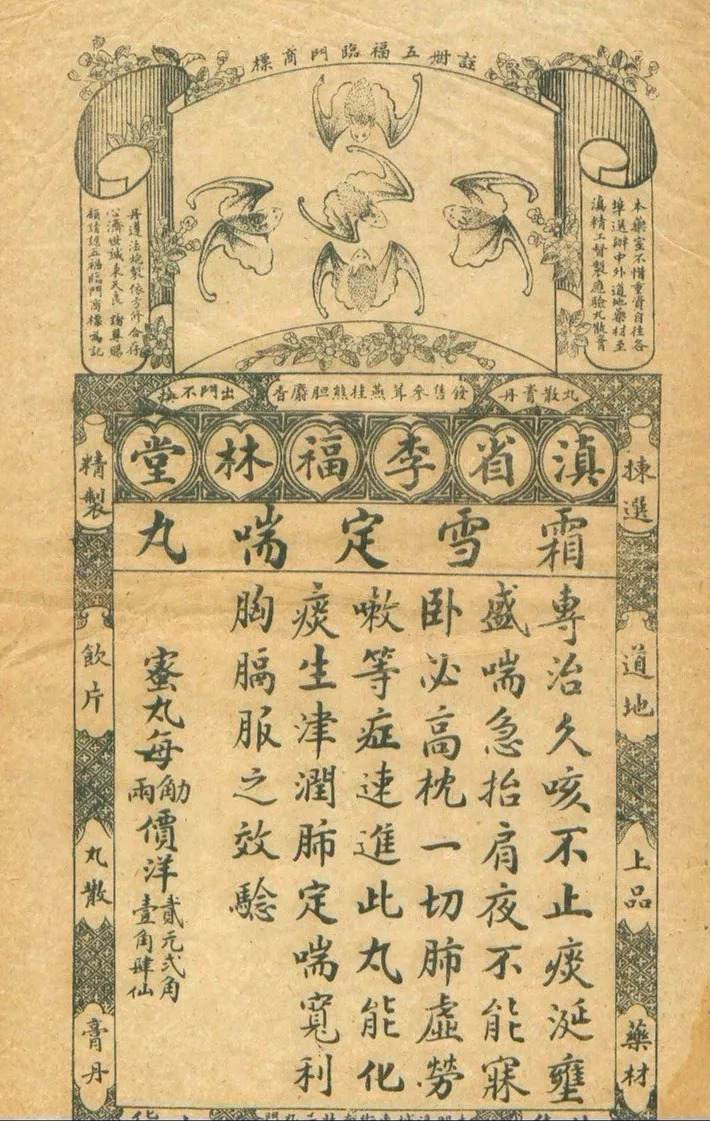 註册五福臨門商標
本藥室不惜重資自往各
埠选辦中外道地藥材至
滇精工督製應驗丸散膏
丹遵法炮製依方修合存
心濟世誠東天良 諸尊賜
顧請認五福臨門商標為記
丸散膏丹
發售參茸燕桂熊胆麝香
出門不換
滇省李福林堂
揀選
道地
上品
藥材
精製
飲片
丸散
膏丹
霜雪定喘丸
專治久咳不止痰涎壅
盛喘急抬肩夜不能寐
卧必高枕一切肺虛勞
嗽等症速進此丸能化
痰生津潤肺定喘寬利
胸膈服之效騐
蜜丸每觔兩價洋貳元弍角壹角肆仙